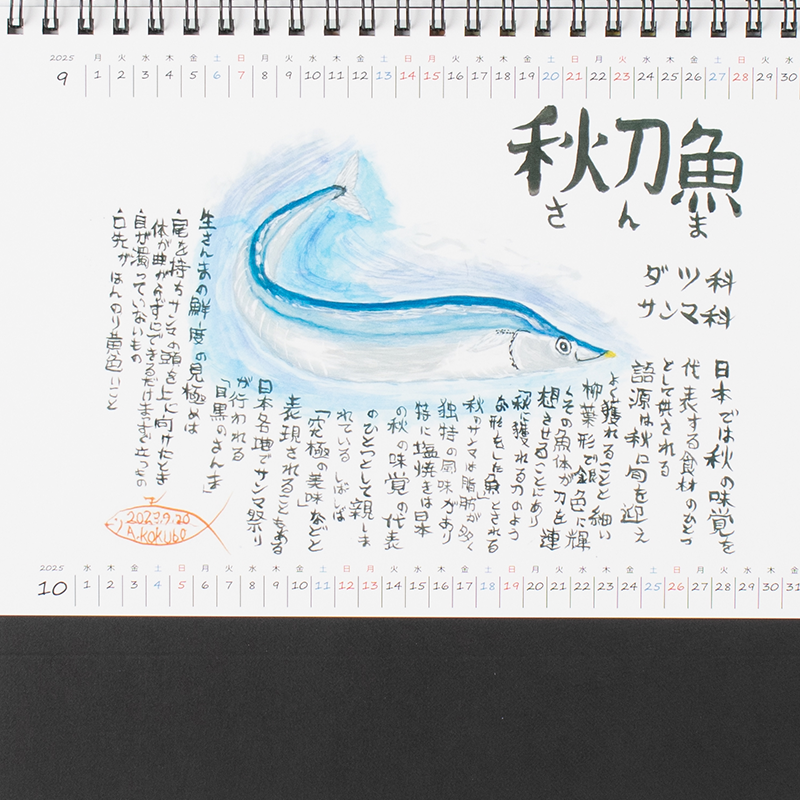 2025
月 火 水 木 金 土 日 月 火 水 木 金 土 日 月 火 水 木 金 土 日 月 火 水 木 金 土 日 月 火
9 1 2 3 4 5 6 7 8 9 10 11 12 13 14 15 16 17 18 19 20 21 22 23 24 25 26 27 28 29 30
秋刀魚
さんま
ダツ科
サンマ科
日本では秋の味覚を
代表する食材のひとつ
として供される
語源は秋に旬を迎え
よく獲れることと細い
柳葉形で銀色に輝
くその魚体が刀を連
想させることにあり
「秋に獲れる刀のよう
な形をした魚」とされる
秋のサンマは脂肪が多く
独特の風味があり
特に塩焼きは日本
の秋の味覚の代表
のひとつとして親しま
れている しばしば
「究極の美味」などと
表現されることもある
日本各地でサンマ祭り
が行われる
「目黒のさんま」
生さんまの鮮度の見極めは
・尾を持ちサンマの頭を上に向けたとき
体が曲がらずにできるだけまっすぐ立つもの
・目が濁っていないもの
・口先がほんのり黄色いこと
2023.9.20
A.kokubo
2025
水 木 金 土 日 月 火 水 木 金 土 日 月 火 水 木 金 土 日 月 火 水 木 金 土 日 月 火 水 木 金
10 1 2 3 4 5 6 7 8 9 10 11 12 13 14 15 16 17 18 19 20 21 22 23 24 25 26 27 28 29 30 31